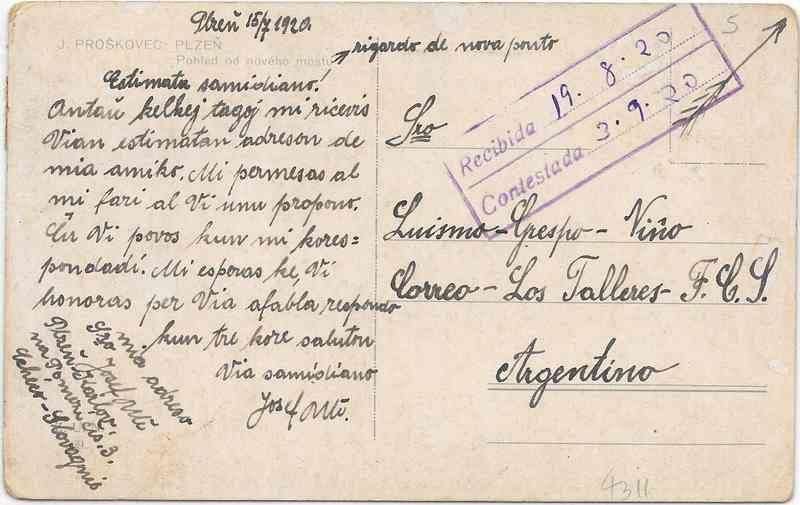 Plzeň 15/7 1920.
J. PROŠKOVEC PLZEŇ
Pohled od nového mostu
rigardo de nova ponto
Estimata samidiano!
Antaŭ kelkej tagoj mi ricevis
Vian estimatan adreson de
mia amiko. Mi permesas al
mi fari al Vi unu propono.
Ĉu Vi povos kun mi kores=
pondadi. Mi esperas ke, Vi
honoras per Via afabla respondo
kun tre kore saluton
Via samidiano
Josef
mia adreso
Sro Josef
Plzeň Karlov
na Pomezí čs. 3.
Ĉeĥeo-Slovaqnio
Recibida 19. 8. 20
Contestada 3. 9. 20
5
Sro
Luismo-Crespo-Viño
Correo-Los Talleres-F.C.S.
Argentino
4311